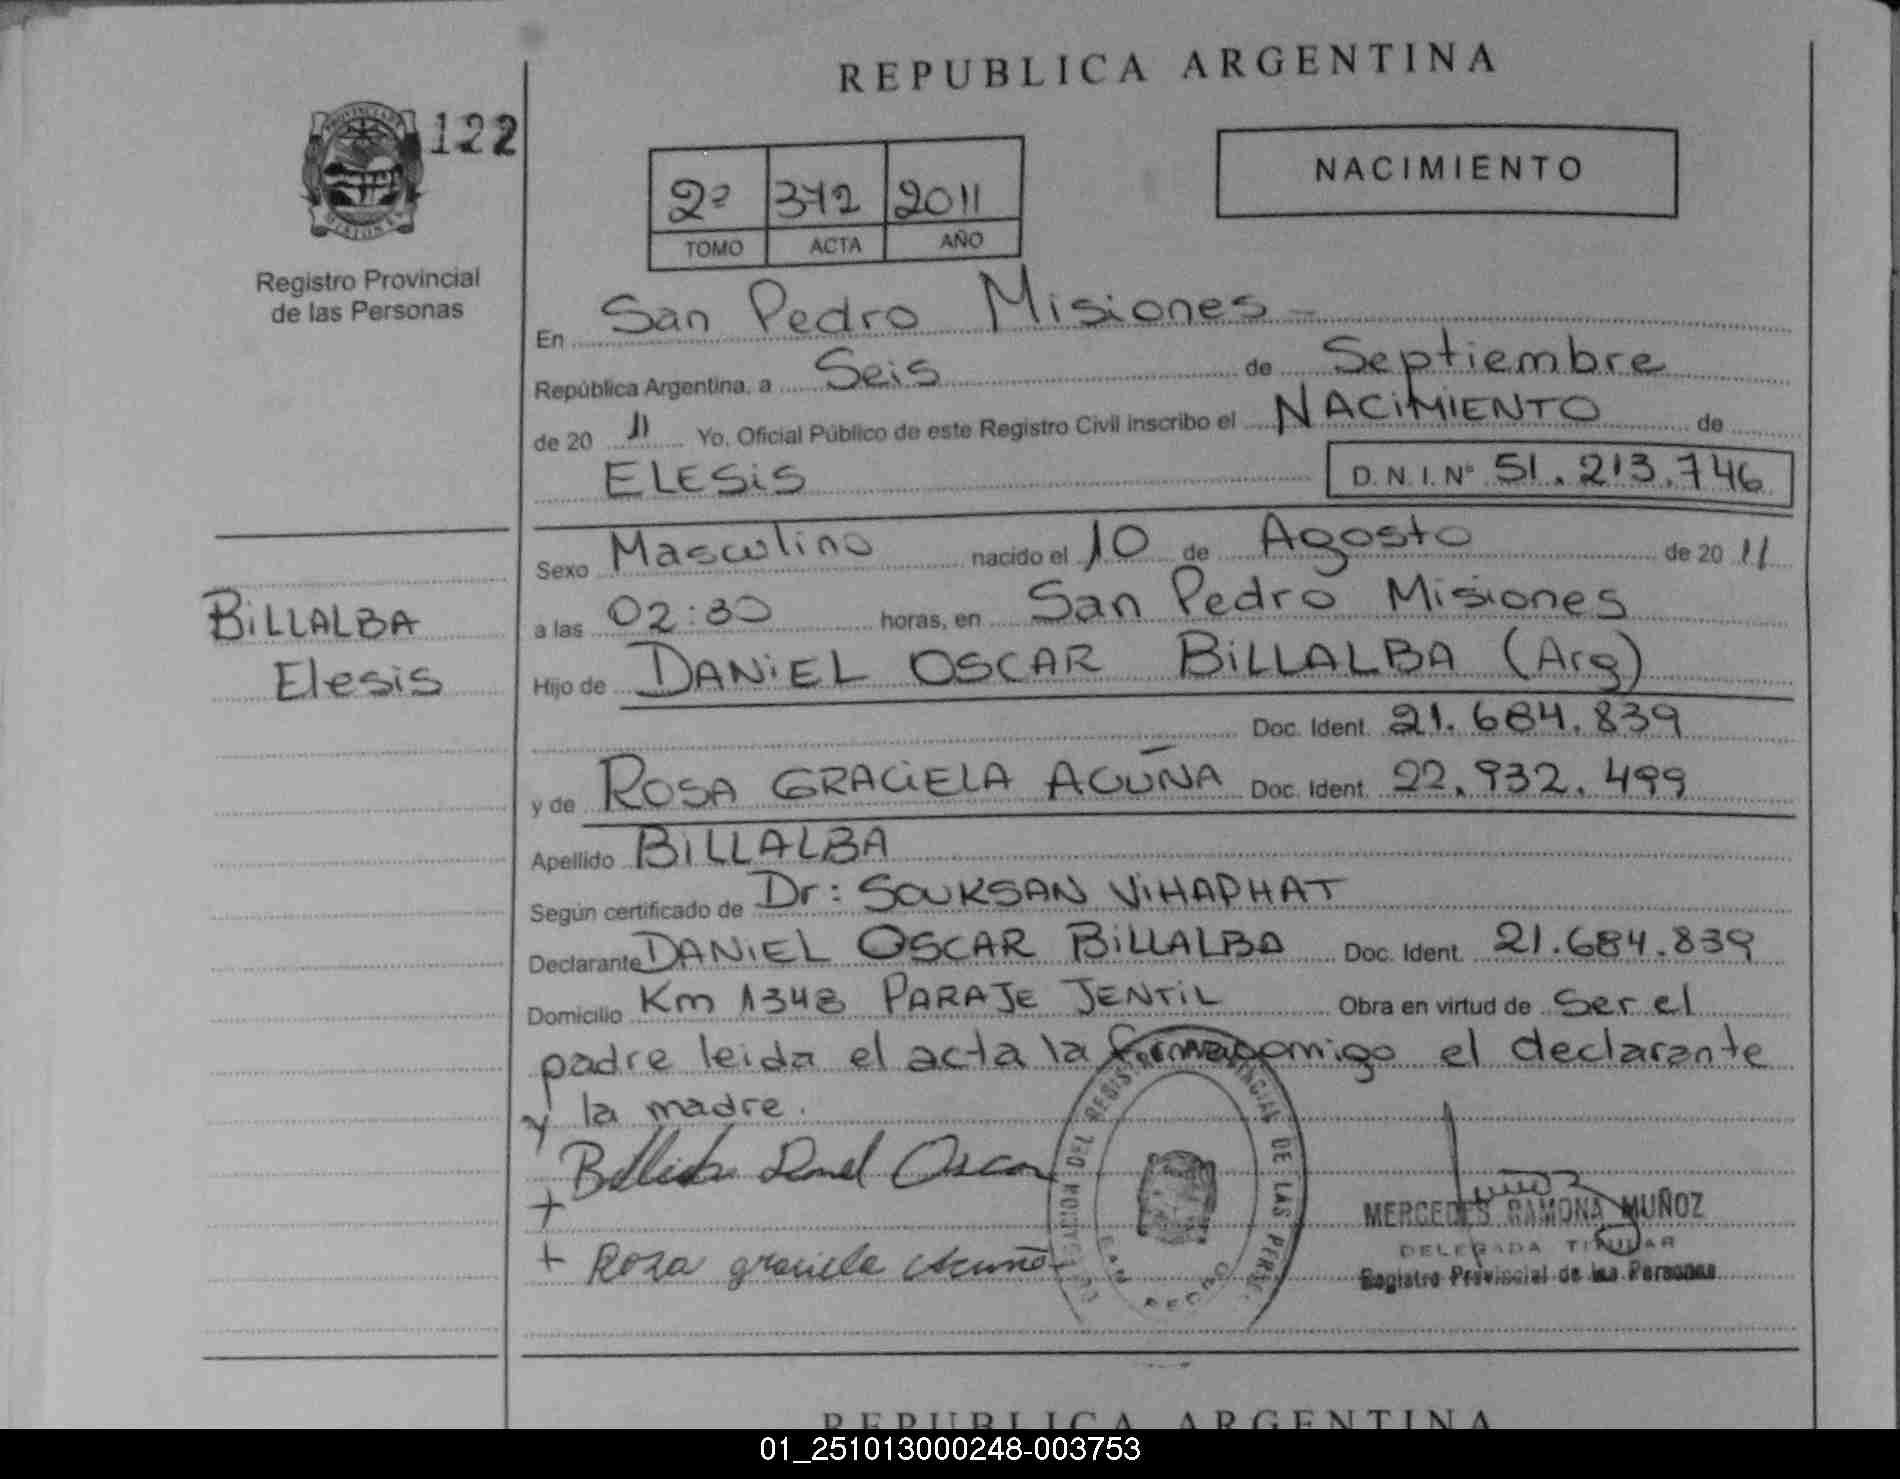 REPUBLICA ARGENTINA
122
NACIMIENTO
2º 372 2011
TOMO ACTA AÑO
Registro Provincial
de las Personas
En San Pedro Misiones
República Argentina, a Seis de Septiembre
de 20 11 Yo, Oficial Público de este Registro Civil inscribo el NACIMIENTO de
ELESIS D.N.I. Nº 51.213.746
Sexo Masculino nacido el 10 de Agosto de 2011
BILLALBA
Elesis
a las 02:30 horas, en San Pedro Misiones
Hijo de DANIEL OSCAR BILLALBA (Arg)
Doc. Ident. 21.684.839
y de ROSA GRACIELA ACUÑA Doc. Ident. 22.932.499
Apellido BILLALBA
Según certificado de Dr: SOUKSAN VIHAPHAT
Declarante DANIEL OSCAR BILLALBA Doc. Ident. 21.684.839
Domicilio Km 1348 PARAJE JENTIL Obra en virtud de Ser el
padre leida el acta la firma comigo el declarante
y la madre.
Billalba Daniel Oscar
+
+ Rosa graciela Acuña
REGISTRO PROVINCIAL DE LAS PERS.
SAN PEDRO
MERCEDES RAMONA MUÑOZ
DELEGADA TITULAR
Registro Provincial de las Personas
REPUBLICA ARGENTINA
01_251013000248-003753